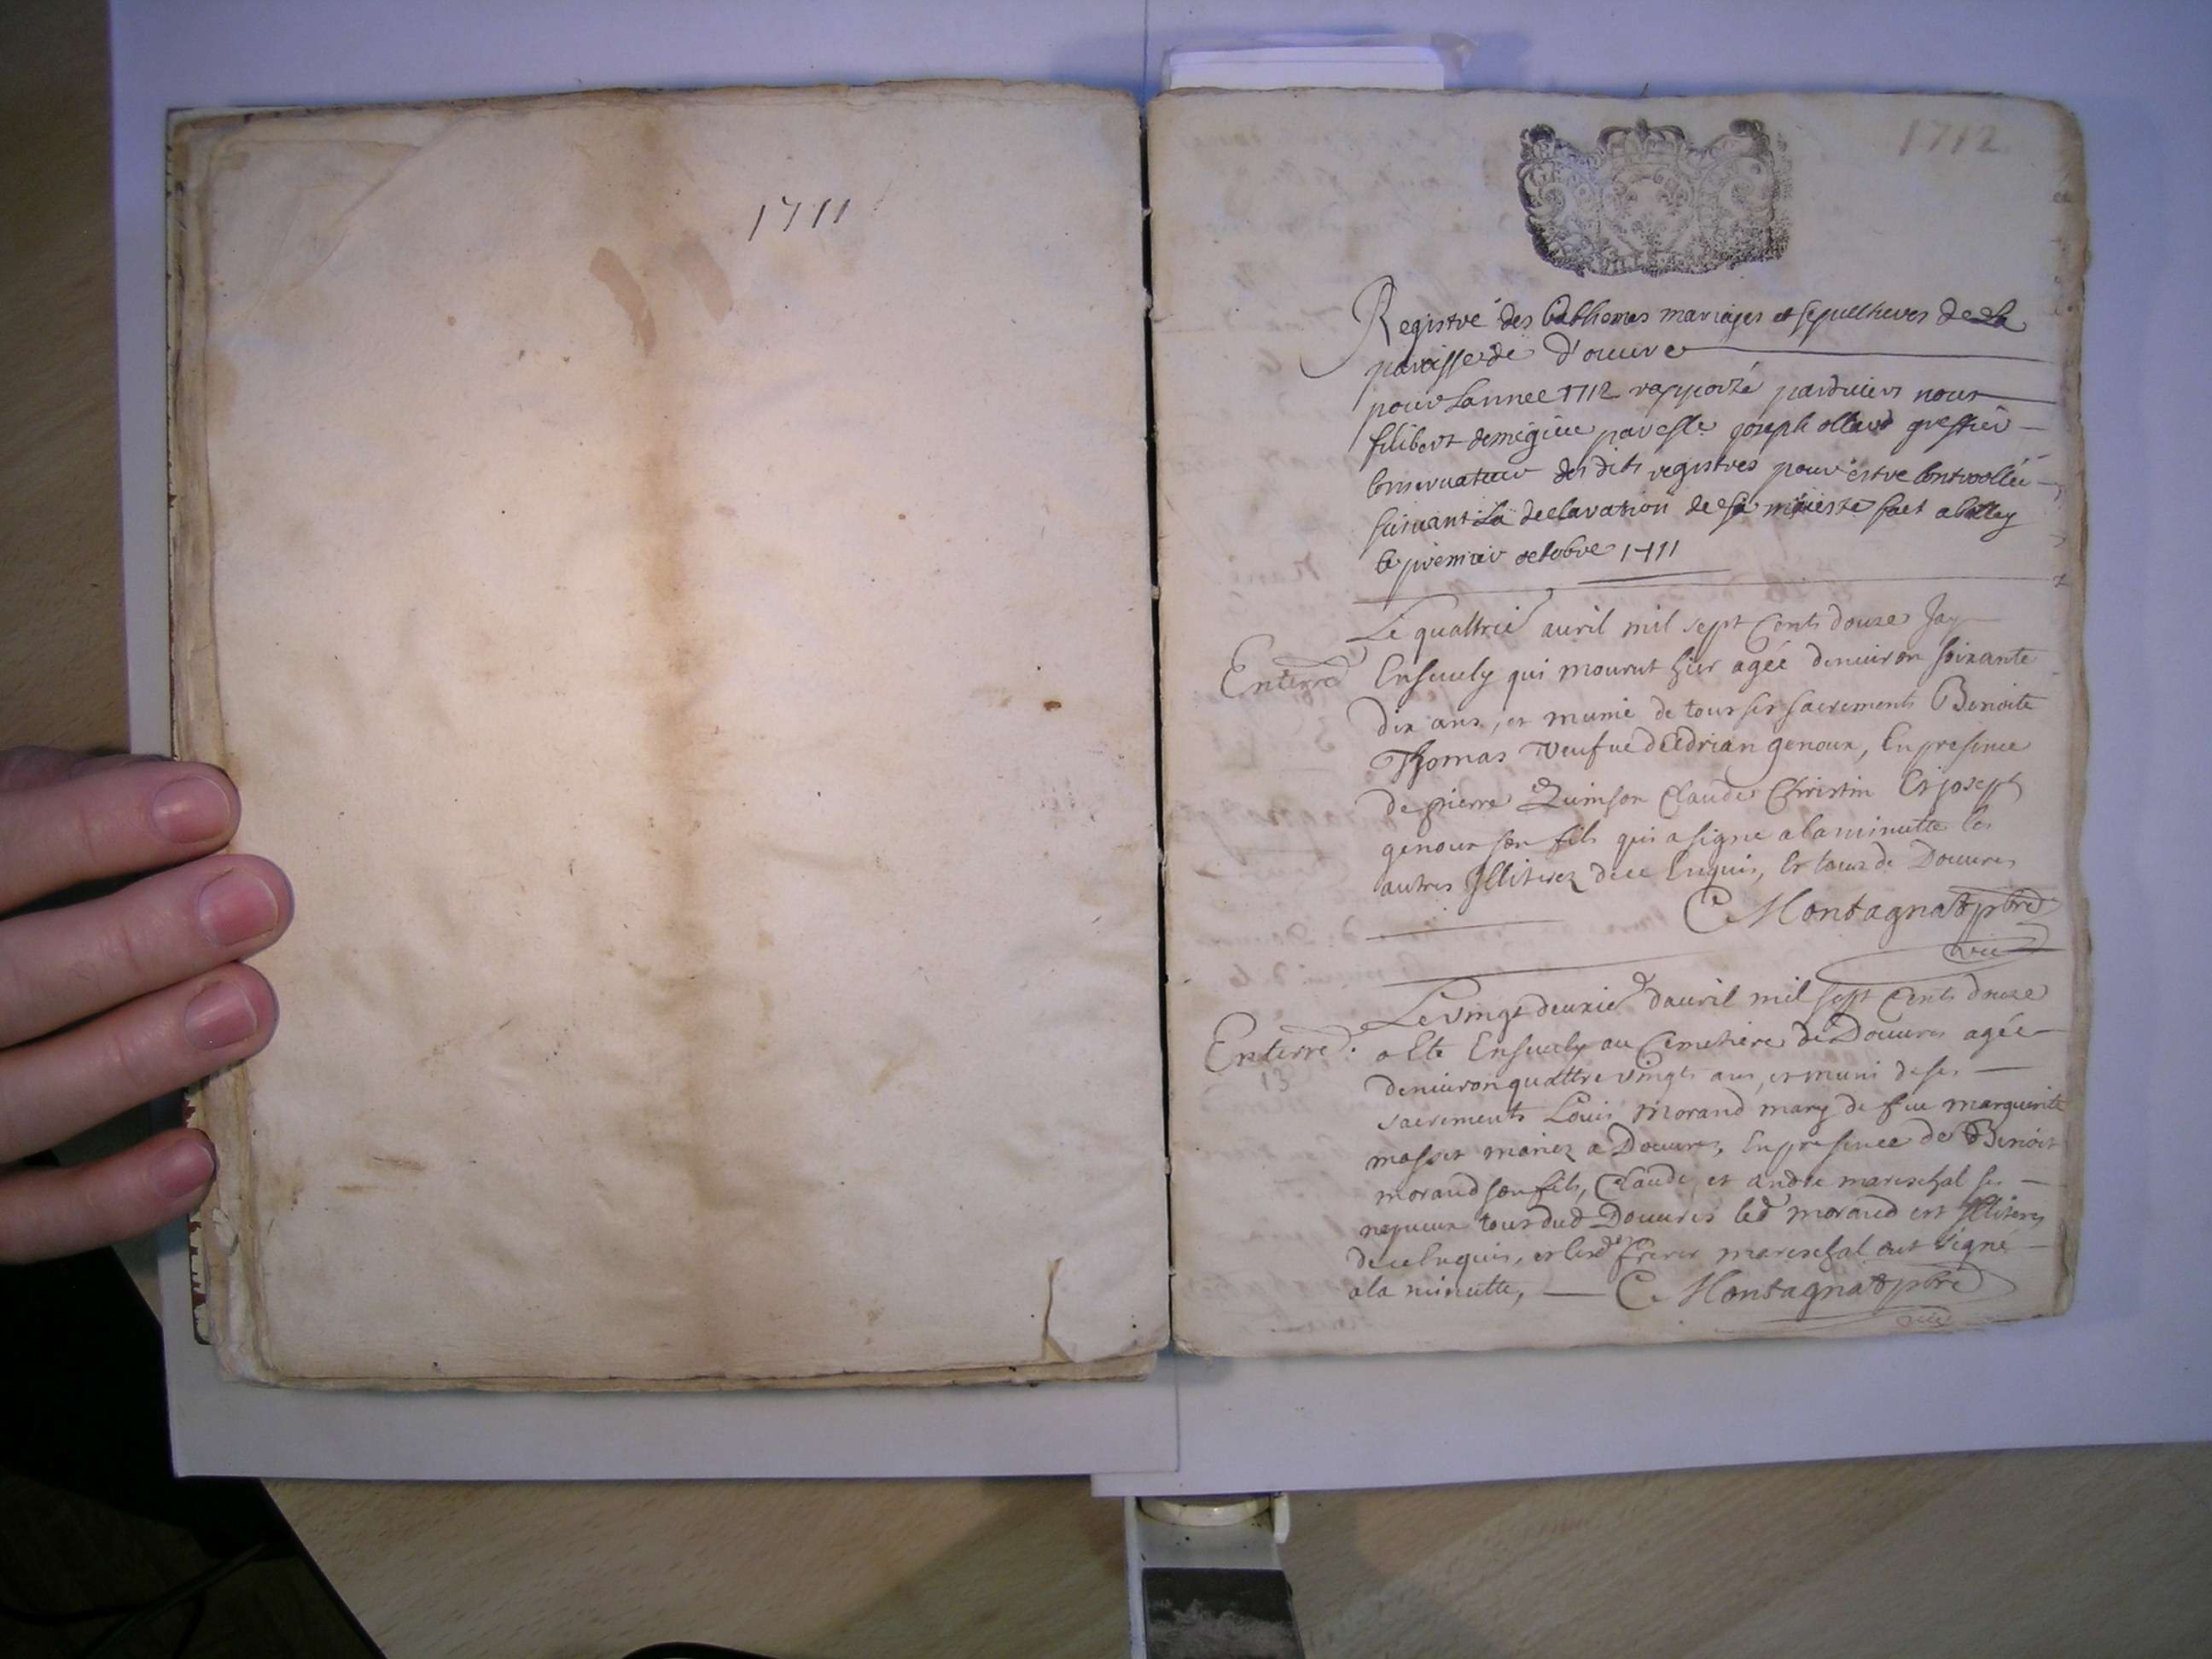 1711
1712
Registre des babtsemes mariages et sepultures de La
paroisse de d'ouure
pour Lannee 1712 rapporté pardeuers nous
filibert demigieu par esse joseph ollard greffier
Conseruateur des dits registres pour estre Controollée
suiuant La declaration de sa maieste fact a
le premier octobre 1711
Le quattrie auril mil sept Cents douze Jay
Enterré
Enseuely qui mourut hier agée denuiron soixante
dix ans, et munie de tous ses sacrements Benoite
Thomas veufue d'Edrian genoux, En presence
de pierre Quinson Claude Christin Et joseph
genoux son fils qui a signe a la minutte les
autres Illiterez de ce Enquis, Et tous de Douures
C Montagnat ptre
vic
Le vingt deuxie dauril mil sept Cents douze
Enterré.
13
a Ete Enseuely au Cemetiere de Douures agée
denuiron quattre vingts ans, et muni de ses
sacrements Louis morand mary de feu marguerite
masset mariez a Douures, En presence de Benoit
morand son fils, Claude, et andre mareschal ses
nepueux tous dud Douures led morand est Illiteres
de ce Enquis, et lesd freres mareschal ont signé
a la minutte, C Montagnat ptre
vic